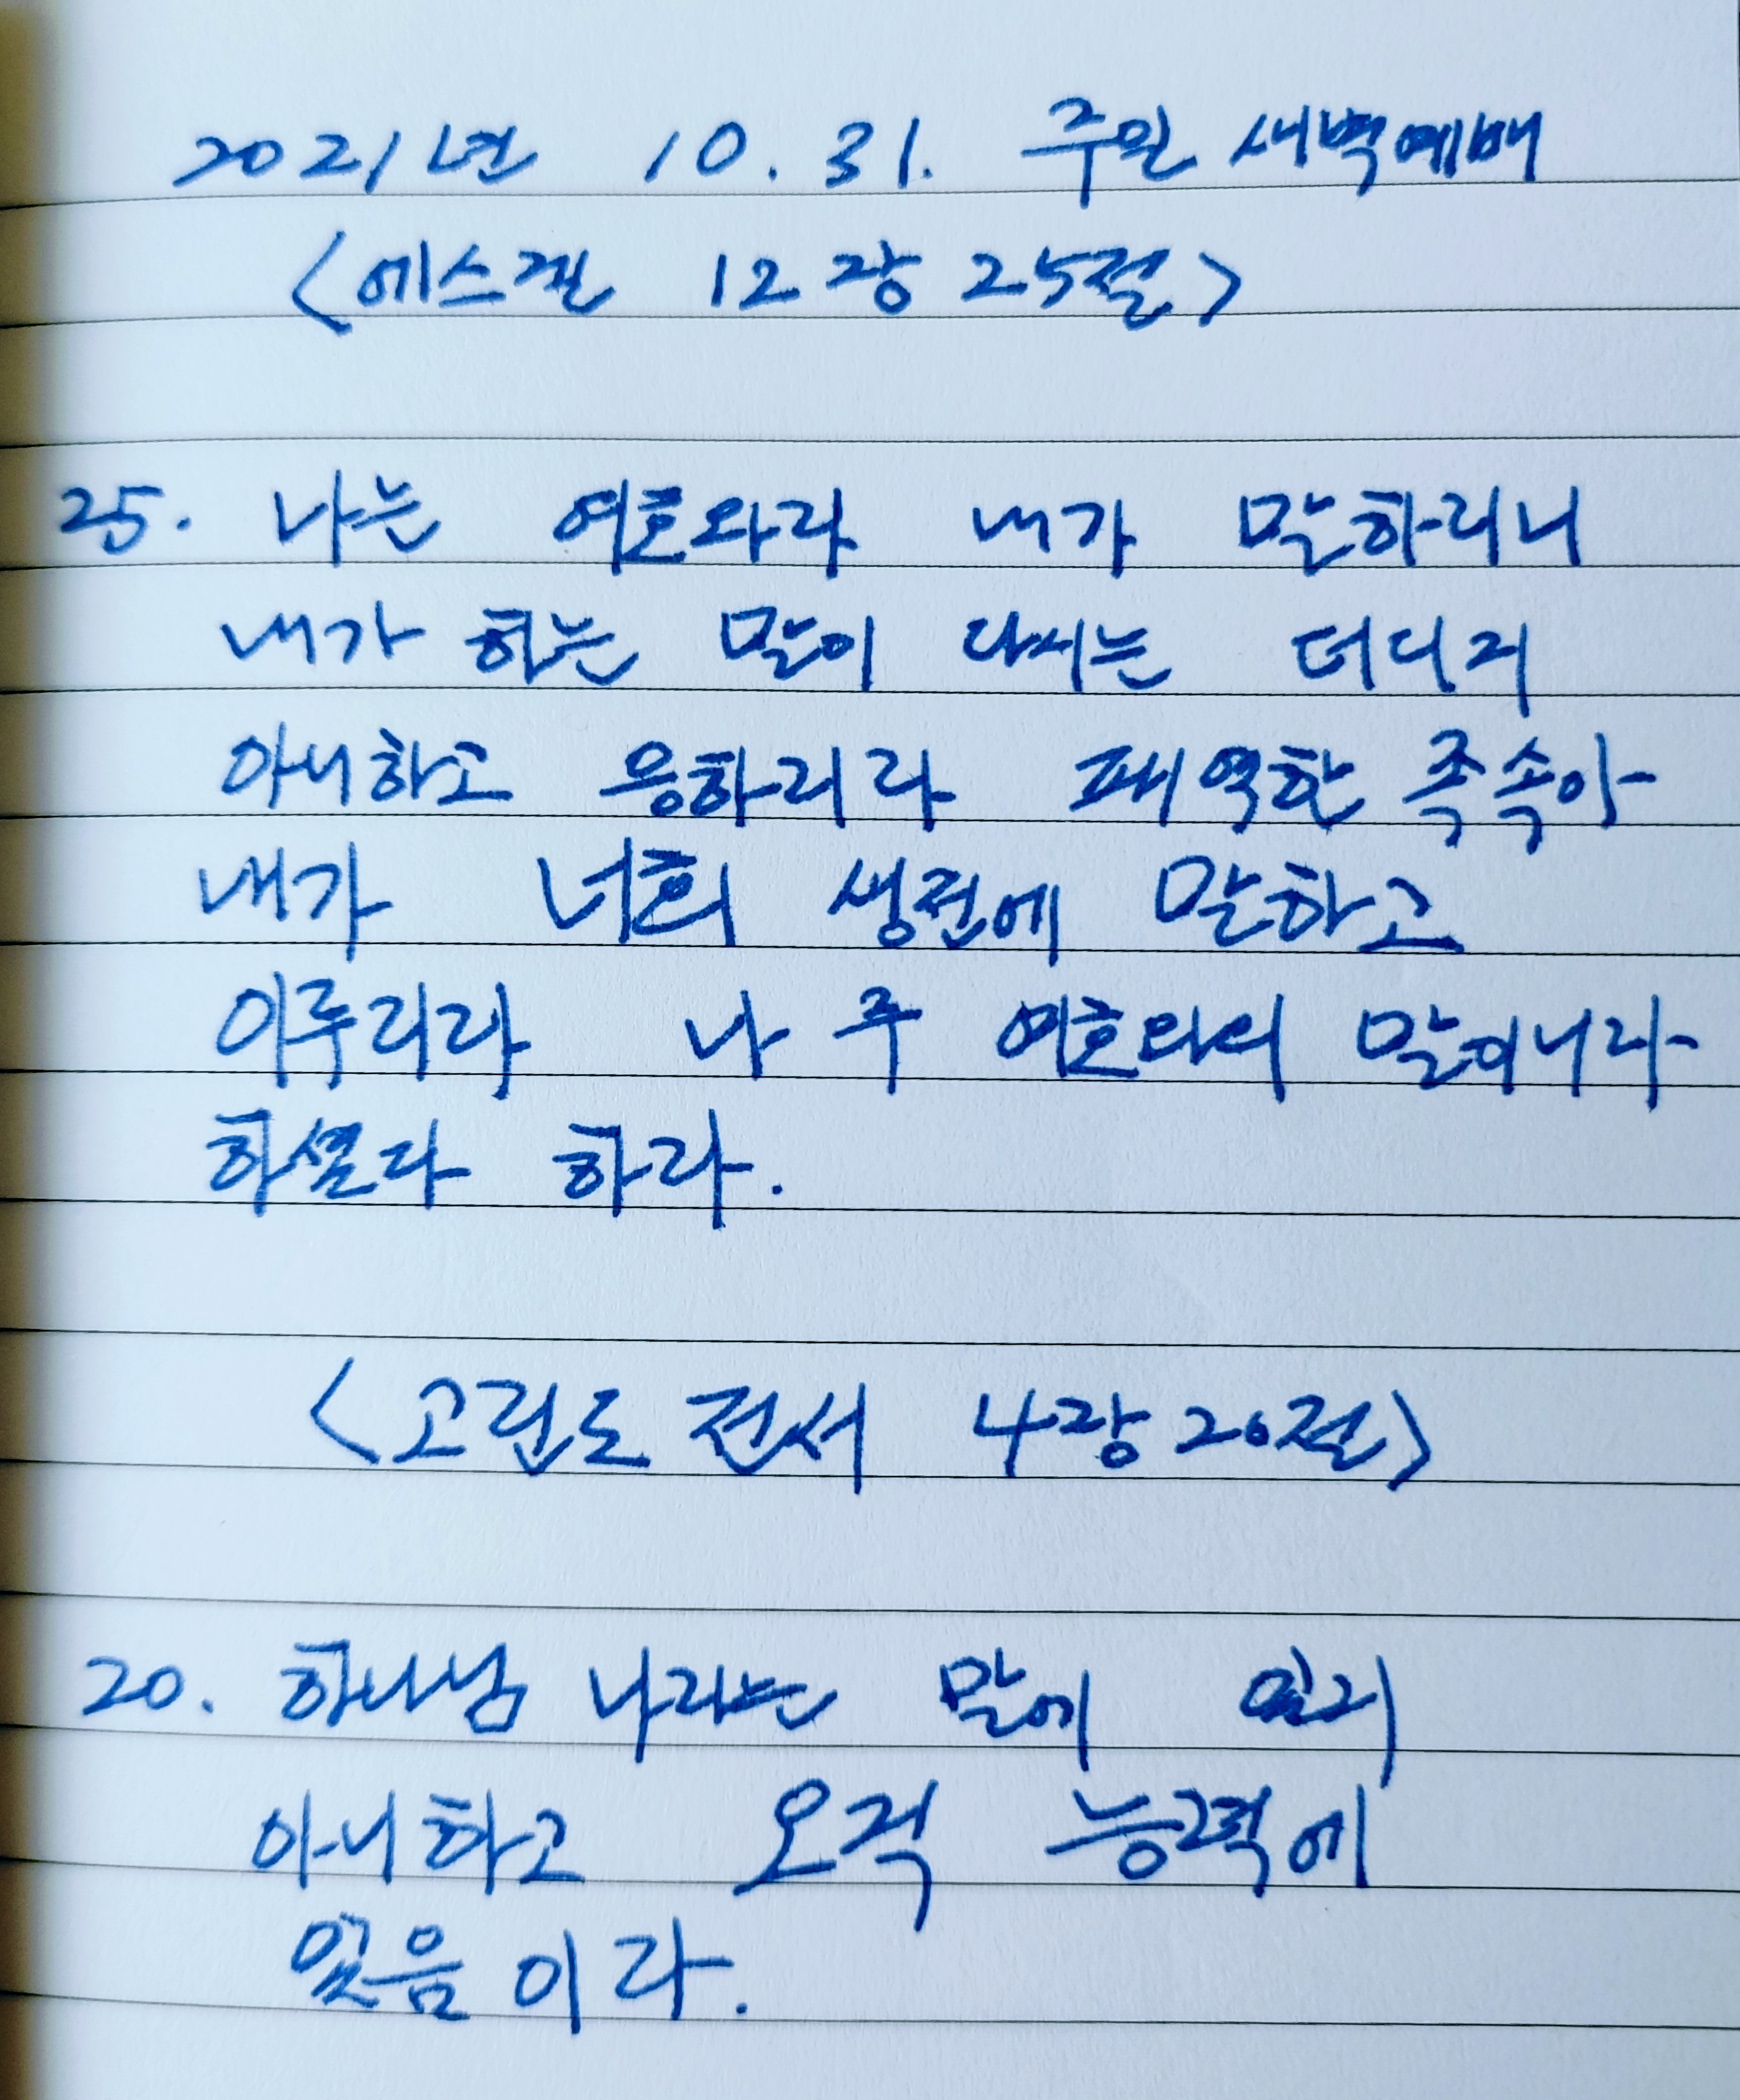 2021년 10. 31. 주일 새벽예배
<에스겔 12장 25절>
25. 나는 여호와라 내가 말하리니
내가 하는 말이 다시는 더디지
아니하고 응하리라 패역한 족속아
내가 너희 생전에 말하고
이루리라 나 주 여호와의 말이니라
하셨다 하라.
<고린도 전서 4장 20절>
20. 하나님 나라는 말에 있지
아니하고 오직 능력에
있음이라.